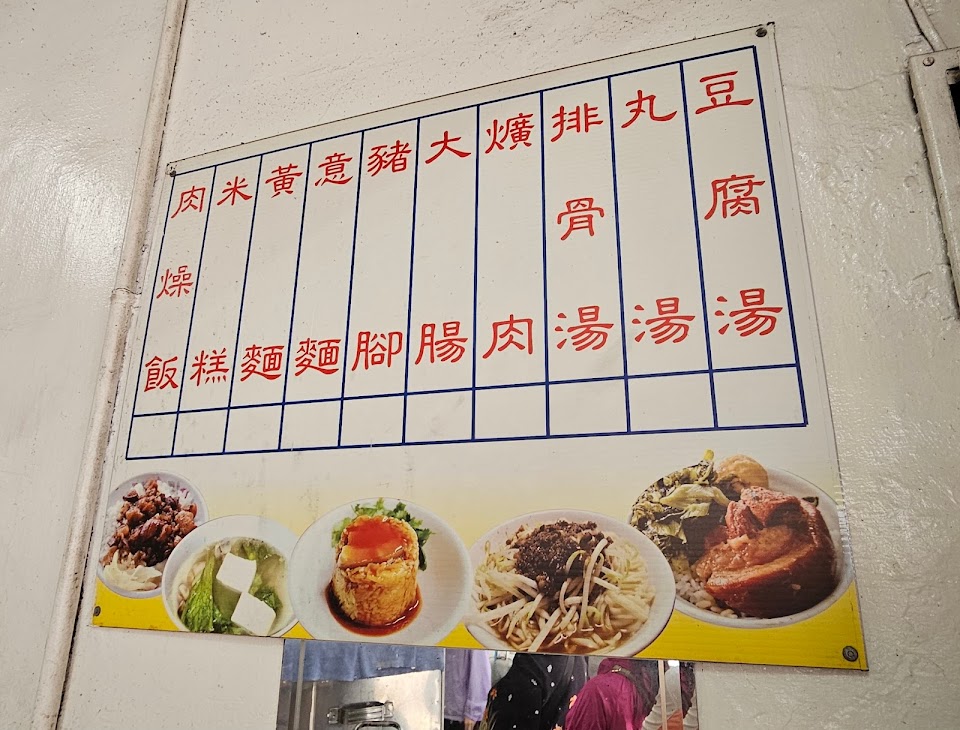 豆腐湯
丸湯
排骨湯
爌肉
大腸
豬腳
意麵
黃麵
米糕
肉燥飯